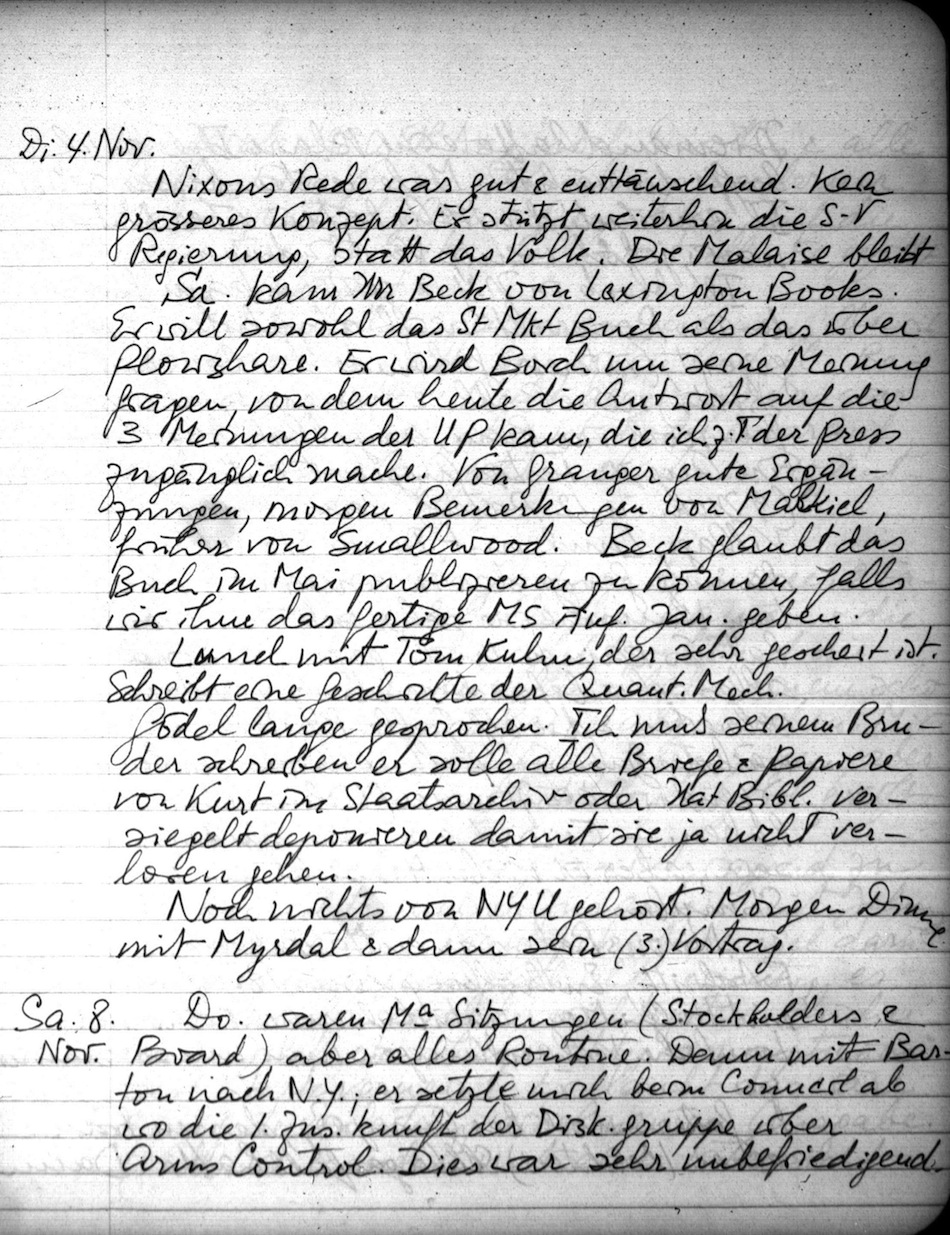 Di. 4. Nov.
Nixons Rede war gut & enttäuschend. Kein
grösseres Konzept. Er stützt weiterhin die S-V
Regierung, statt das Volk. Die Malaise bleibt
Sa. kam Mr Beck von Lexington Books.
Er will sowohl das St Mkt Buch als das über
Plowshare. Er wird Borch um seine Meinung
fragen, von dem heute die Antwort auf die
3 Meinungen der UP kam, die ich z.T der Press
zugänglich mache. Von Granger gute Ergän-
zungen, morgen Bemerkungen von Malkiel,
früher von Smallwood. Beck glaubt das
Buch im Mai publizieren zu können, falls
wir ihm das fertige MS Anf. Jan. geben.
Lunch mit Tom Kuhn, der sehr gescheit ist.
Schreibt eine Geschichte der Quant. Mech.
Gödel lange gesprochen. Ich muss seinem Bru-
der schreiben er solle alle Briefe & Papiere
von Kurt im Staatsarchiv oder Nat Bibl. ver-
siegelt deponieren damit sie ja nicht ver-
loren gehen.
Noch nichts von NYU gehört. Morgen Dinner
mit Myrdal & dann sein (3.) Vortrag.
Sa. 8. Do. waren Ma Sitzungen (Stockholders &
Nov. Board) aber alles Routine. Dann mit Bar-
ton nach N.Y.; er setzte mich beim Council ab
wo die 1. Zus.kunft der Disk.gruppe über
Arms Control. Dies war sehr unbefriedigend.